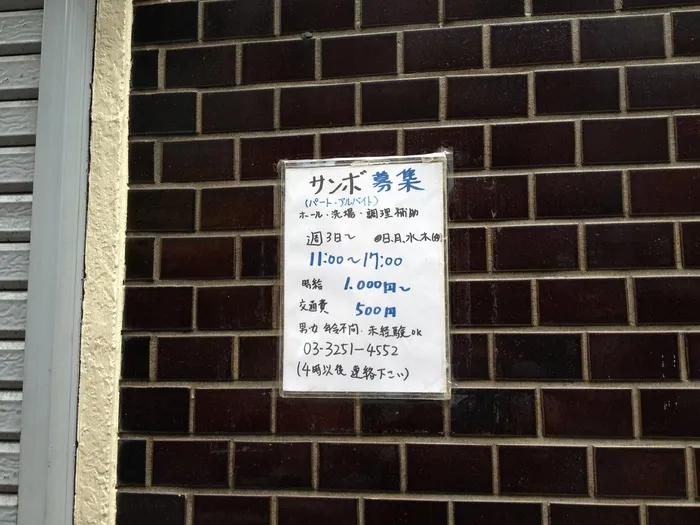 サンボ 募集
(パート・アルバイト)
ホール・洗場・調理補助
週3日〜 日、月、水、木
11:00〜17:00
時給 1.000円〜
交通費 500円
男女 年令不問・未経験ok
03-3251-4552
(4時以後 連絡下さい)